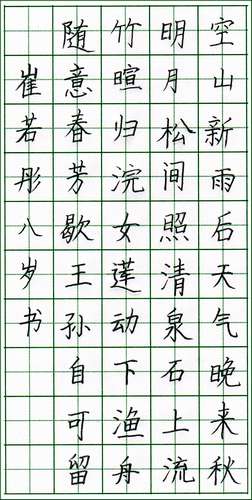 空山新雨后天气晚来秋
明月松间照清泉石上流
竹暄归浣女莲动下渔舟
随意春芳歇王孙自可留
崔若彤八岁书